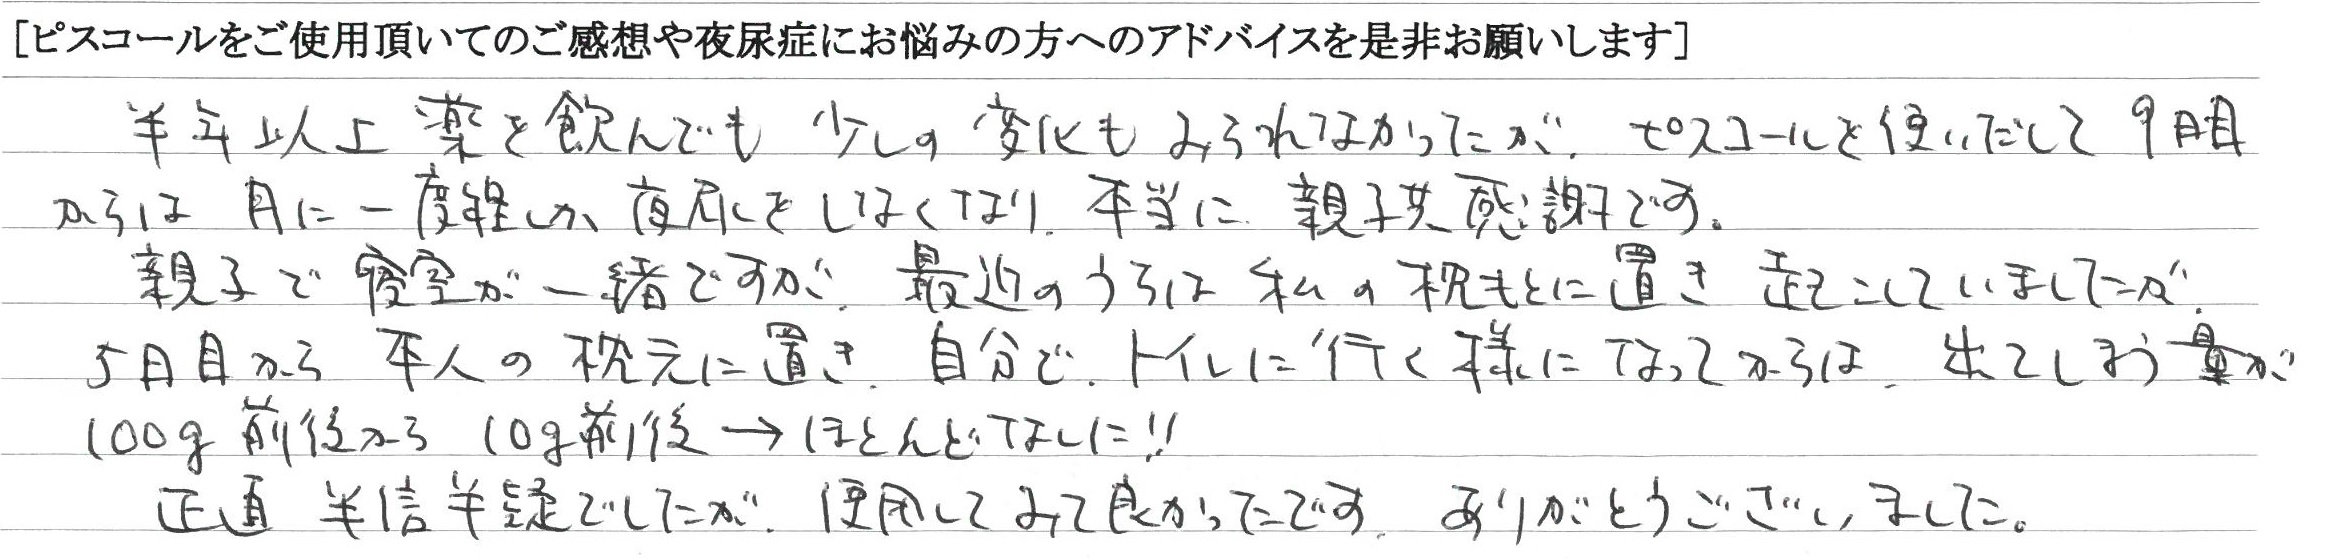 [ピスコールをご使用頂いてのご感想や夜尿症にお悩みの方へのアドバイスを是非お願いします]
半年以上 薬を飲んでも 少しの変化も みられなかったが、ピスコールを使いだして 9日目
からは 月に一度程しか 夜尿をしなくなり、本当に 親子共 感謝です。
親子で 寝室が一緒ですが、最近のうちは 私の枕もとに置き 起こしていましたが、
5日目から 本人の枕元に置き、自分で、トイレに行く様になってからは、出てしまう量が
100g前後から 10g前後→ほとんどなしに!!
正直 半信半疑でしたが、使用してみて良かったです。ありがとうございました。